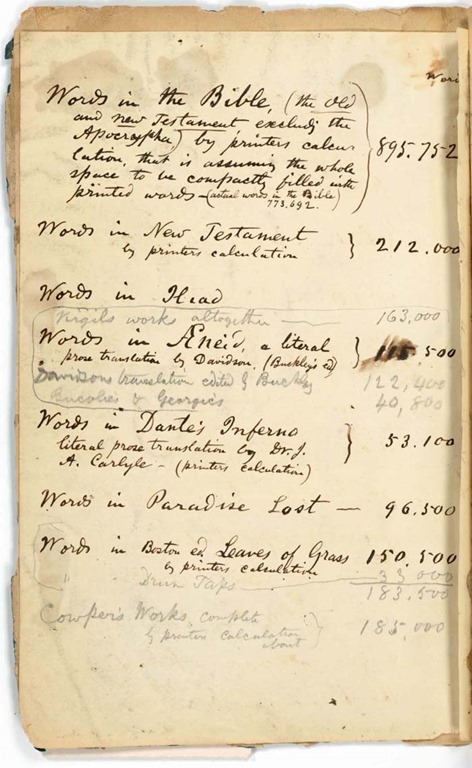 Words in the Bible, (the old
and new Testament excludi the
Apocrypha) by printers calcu
lation, that is assuming the whole
space to be compactly filled with
printed words — (actual words in the Bible)
773.692.
895.752
Words in New Testament
by printers calculation
212.000
Words in Iliad
Virgils works altogether — 163,000
Words in Æneid, a literal
prose translation by Davidson. (Buckley's ed)
500
Davidsons translation edited by Buckley 122,400
Bucolics & Georgics 40,800
Words in Dante's Inferno
literal prose translation by Dr. J.
A. Carlyle — (printers calculation)
53.100
Words in Paradise Lost — 96.500
Words in Boston ed. Leaves of Grass 150.500
by printers calculation
" Drum Taps 33 000
183,500
Cowper's Works complete
by printers calculation
about
185,000